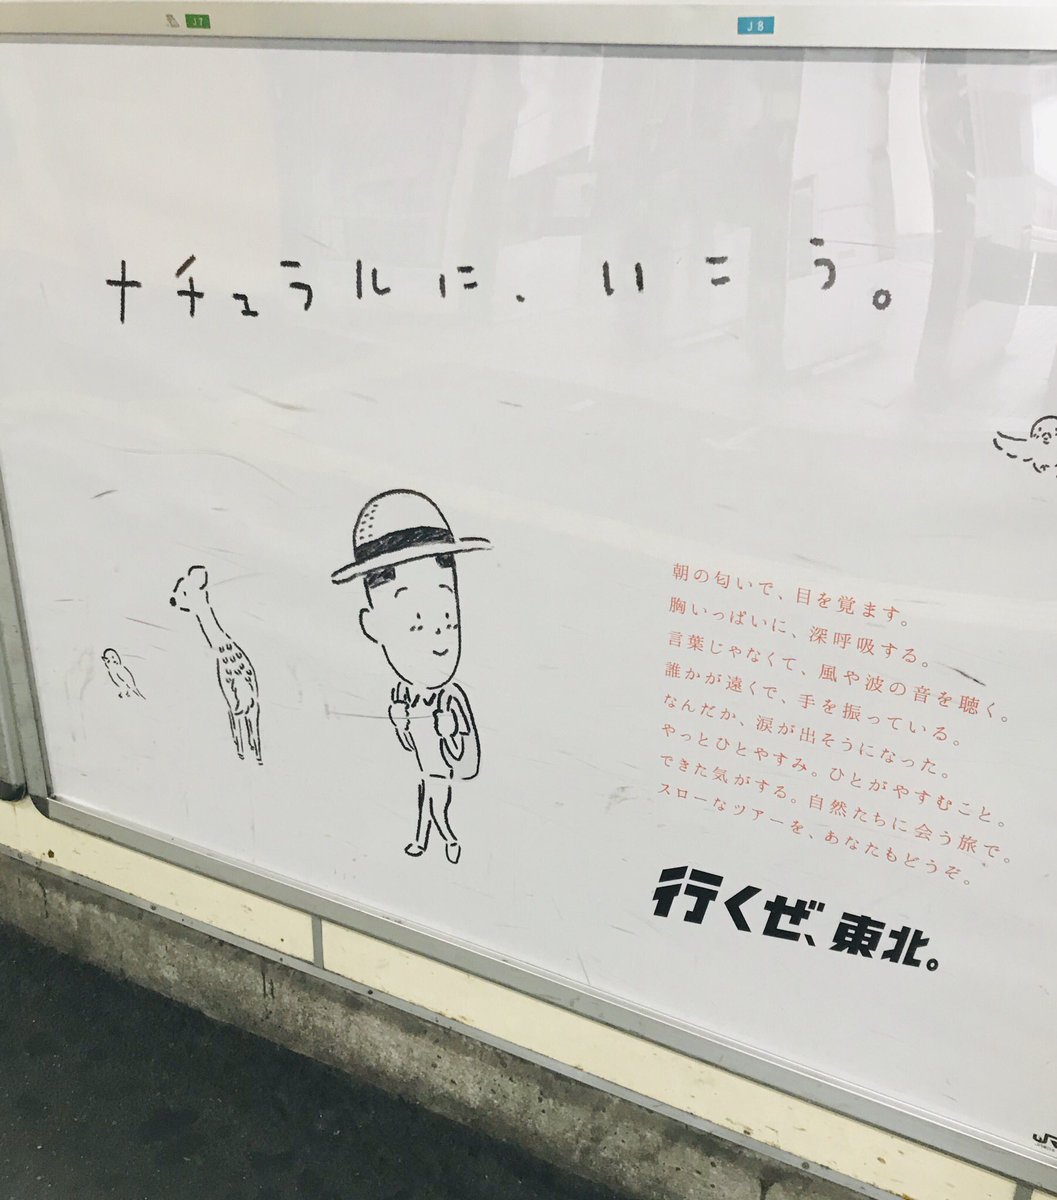 J7
J8
ナチュラルに、いこう。
朝の匂いで、目を覚ます。
胸いっぱいに、深呼吸する。
言葉じゃなくて、風や波の音を聴く。
誰かが遠くで、手を振っている。
なんだか、涙が出そうになった。
やっとひとやすみ。ひとがやすむこと。
できた気がする。自然たちに会う旅で。
スローなツアーを、あなたもどうぞ。
行くぜ、東北。